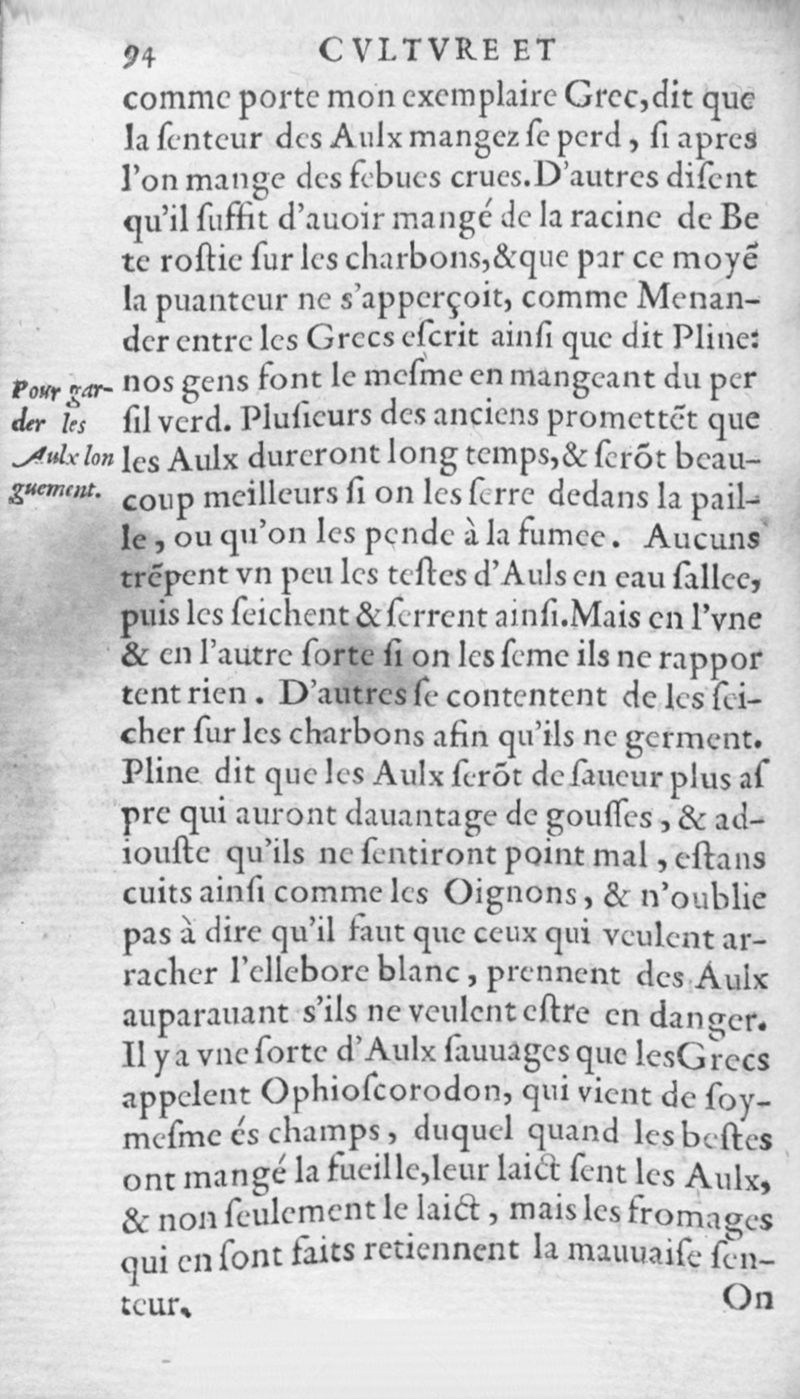 94 CVLTVRE ET
comme porte mon exemplaire Grec,dit que
la ſenteur des Aulx mangez ſe perd , ſi apres
l'on mange des febues crues.D'autres diſent
qu'il ſuffit d'auoir mangé de la racine de Be
te roſtie ſur les charbons,&que par ce moyẽ
la puanteur ne s'apperçoit, comme Menan-
der entre les Grecs eſcrit ainſi que dit Pline:
nos gens font le meſme en mangeant du per
ſil verd. Pluſieurs des anciens promettẽt que
les Aulx dureront long temps,& ſerõt beau-
coup meilleurs ſi on les ſerre dedans la pail-
le , ou qu'on les pende à la fumee. Aucuns
trẽpent vn peu les teſtes d'Auls en eau ſallee,
puis les ſeichent & ſerrent ainſi.Mais en l'vne
& en l'autre ſorte ſi on les ſeme ils ne rappor
tent rien . D'autres ſe contentent de les ſei-
cher ſur les charbons afin qu'ils ne germent.
Pline dit que les Aulx ſerõt de ſaueur plus aſ
pre qui auront dauantage de gouſſes , & ad-
iouſte qu'ils ne ſentiront point mal , eſtans
cuits ainſi comme les Oignons , & n'oublie
pas à dire qu'il faut que ceux qui veulent ar-
racher l'ellebore blanc , prennent des Aulx
auparauant s'ils ne veulent eſtre en danger.
Il y a vne ſorte d'Aulx ſauuages que lesGrecs
appelent Ophioſcorodon, qui vient de ſoy-
meſme és champs , duquel quand les beſtes
ont mangé la fueille,leur laict ſent les Aulx,
& non ſeulement le laict , mais les fromages
qui en ſont faits retiennent la mauuaiſe ſen-
teur.
On
Pour gar-
der les
Aulx lon
guement.